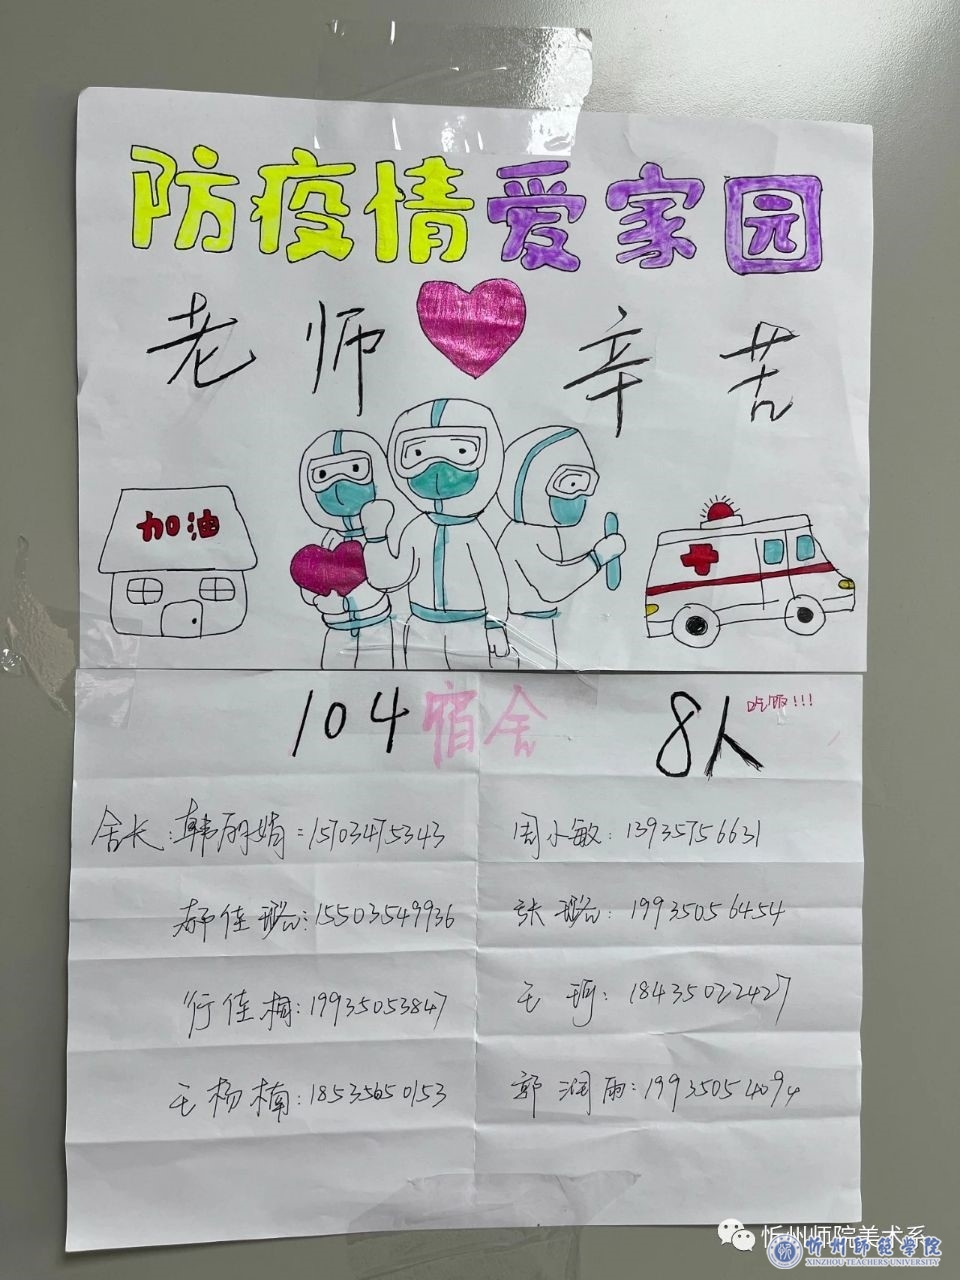 防疫情爱家园
老师辛苦
加油
104宿舍 8人 吃饭!!!
舍长:韩丽娟:15703475343 周小敏:13935756631
郝佳璐:15503549936 张璐:19935056454
行佳楠:19935053847 王珂:18435022427
王杨楠:18535650153 郭润雨:19935054094
忻州师院美术系
忻州师范学院
XINZHOU TEACHERS UNIVERSITY